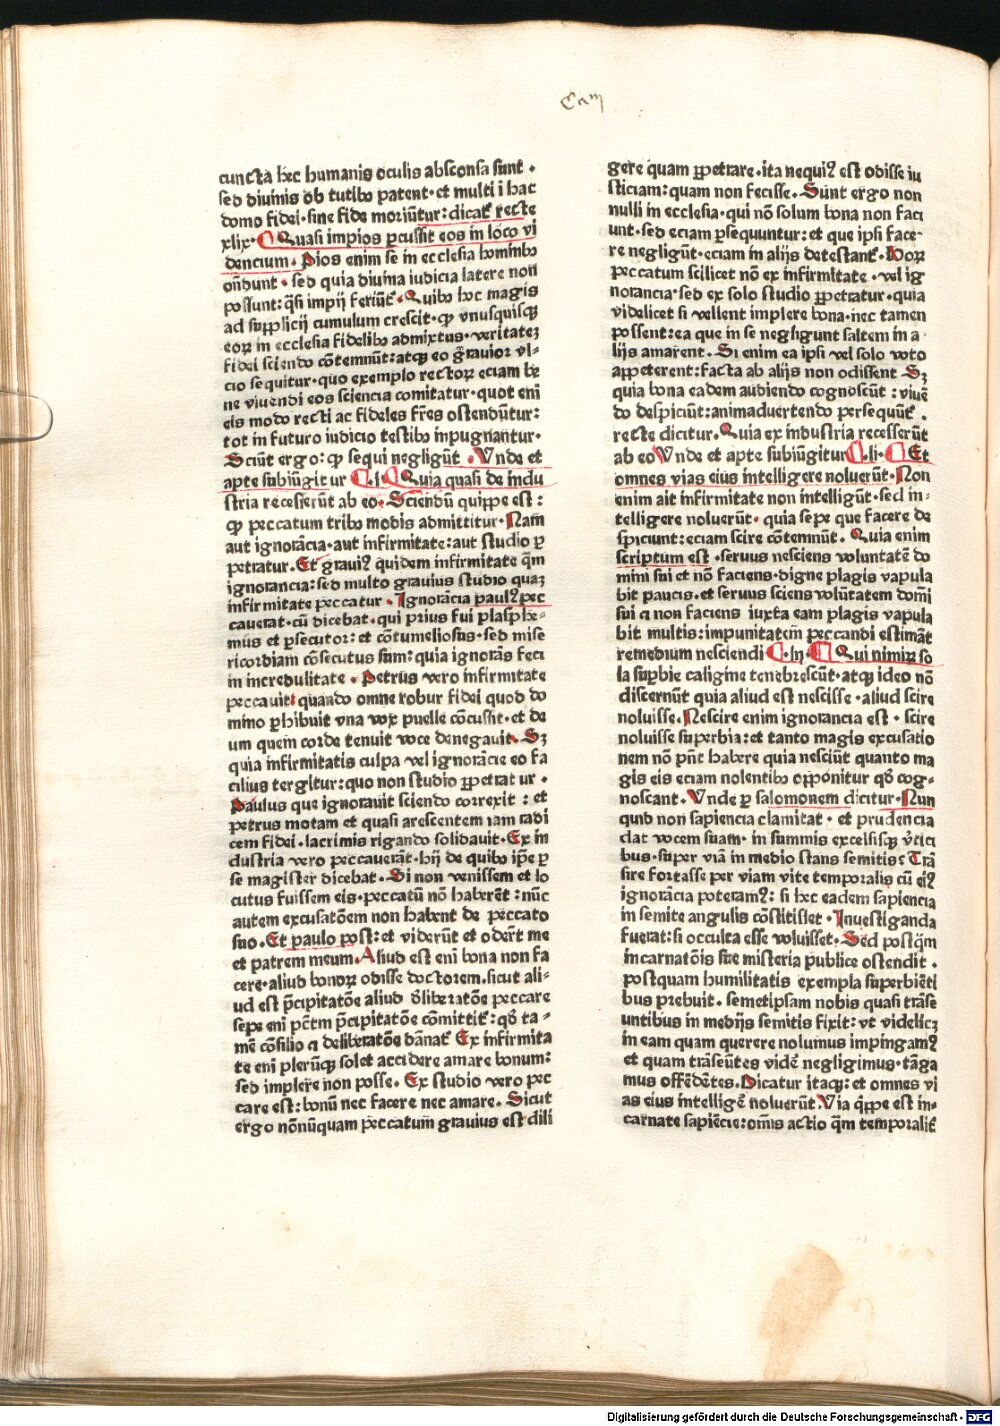 cuncta hec humanis oculis absconsa sunt .
sed diuinis ob tutibꝫ patent · et multi ī hac
domo fidei · sine fide moriūtur : dicat᷑ recte
xlix · Quasi impios ꝑcussit eos in loco vi
dencium · Pios enim se in ecclesia hominibꝫ
oñdunt · sed quia diuina iudicia latere non
possunt : q̄si impij feriūt᷑ · Quibꝫ hoc magis
ad supplicij cumulum crescit · ꝙ vnusquisqꝫ
eoꝝ in ecclesia fidelibꝫ admixtus · veritateꝫ
fidei sciendo cōtemnūt : atqꝫ eo grauior vl-
cio sequitur · quo exemplo rectoꝝ eciam be
ne viuendi eos sciencia comitatur · quot eni
eis modo recti ac fideles fr̄es ostendūtur :
tot in futuro iudicio testibꝫ inpugnantur ·
Sciūt ergo : ꝙ sequi negligūt · Vnde et
apte subiūgitur · l · Quia quasi de indu
stria recesserūt ab eo · Sciendū quippe est :
ꝙ peccatum tribꝫ modis admittitur · Nam
aut ignorācia · aut infirmitate : aut studio ꝑ
petratur · Et graui9 quidem infirmitate q̄m
ignorancia : sed multo grauius studio quaꝫ
infirmitate peccatur · Ignorācia paul9 pec
cauerat · cū dicebat · qui prius fui plasphe-
mus et ꝑsecutor : et cōtumeliosus · sed mise
ricordiam cōsecutus sum : quia ignorās feci
in incredulitate · Petrus vero infirmitate
peccauit : quando omne robur fidei quod do
mino ꝑhibuit vna vox puelle cōcussit · et de
um quem corde tenuit voce denegauit · Sꝫ
quia infirmitatis culpa vel ignorācie eo fa
cilius tergitur : quo non studio ꝑpetrat ur ·
Paulus que ignorauit sciendo correxit : et
petrus motam et quasi arescentem iam radi
cem fidei · lacrimis rigando solidauit · Ex in
dustria vero peccauerāt · hij de quibꝫ ip̄e ꝑ
se magister dicebat · Si non venissem et lo
cutus fuissem eis · peccatū nō haberēt : nūc
autem excusatōem non habent de peccato
suo · Et paulo post : et viderūt et oderūt me
et patrem meum · Aliud est eni bona non fa
cere · aliud bonoꝝ odisse doctorem · sicut ali-
ud est p̄cipitatōe aliud d̓liberatōe peccare
sepe eni pc̄tm p̄cipitatōe cōmittit᷑ : qd̓ ta-
mē cōsilio ⁊ deliberatōe dānat᷑ Ex infirmita
te eni plerūqꝫ solet accidere amare bonum :
sed implere non posse · Ex studio vero pec
care est : bonū nec facere nec amare · Sicut
ergo nōnūquam peccatum grauius est dili
gere quam ꝑpetrare · ita nequi9 est odisse iu
sticiam : quam non fecisse · Sunt ergo non
nulli in ecclesia · qui nō solum bona non faci
unt · sed eciam ꝑsequuntur : et que ipsi face-
re negligūt · eciam in alijs detestant᷑ · Hoꝝ
peccatum scilicet nō ex infirmitate · vel ig
norancia · sed ex solo studio ꝑpetratur · quia
videlicet si vellent implere bona · nec tamen
possent : ea que in se negligunt saltem in a ·
lijs amarent · Si enim ea ipsi vel solo voto
appeterent : facta ab alijs non odissent Sꝫ
quia bona eadem audiendo cognoscūt : viuē
do despiciūt : animaduertendo persequūt᷑ .
recte dicitur · Quia ex industria recesserūt
ab eo Vnde et apte subiūgitur · li · Et
omnes vias eius intelligere noluerūt · Non
enim ait infirmitate non intelligūt · sed in-
telligere noluerūt · quia sepe que facere de
spiciunt : eciam scire cōtemnūt · Quia enim
scriptum est · seruus nesciens voluntatē do
mini sui et nō faciens · digne plagis vapula
bit paucis · et seruus sciens volūtatem domī
sui ⁊ non faciens iuxta eam plagis vapula
bit multis : impunitatem peccandi estimāt
remedium nesciendi · lij · Qui nimiꝝ so
la suꝑbie caligine tenebrescūt · atqꝫ ideo nō
discernūt quia aliud est nescisse · aliud scire
noluisse · Nescire enim ignorancia est · scire
noluisse superbia : et tanto magis excusatio
nem nō pn̄t habere quia nesciūt quanto ma
gis eis eciam nolentibꝫ oꝑponitur qd̓ cog-
noscant · Vnde ꝑ salomonem dicitur · Nun
quid non sapiencia clamitat · et prudencia
dat vocem suam · in summis excelsisqꝫ v̄tici
bus · super viā in medio stans semitis : Trā
sire fortasse per viam vite temporalis cū ei9
ignorācia poteram9 : si hec eadem sapiencia
in semite angulis cōstitisset · Inuestiganda
fuerat : si occulta esse voluisset · Sed postq̄m
incarnatōis sue misteria publice ostendit ·
postquam humilitatis exempla superbiēti
bus prebuit · semetipsam nobis quasi trāse
untibus in medijs semitis fixit : vt videlicꝫ
in eam quam querere nolumus impingam9
et quam trāseūtes vidē negligimus · tāga
mus offēdētes · Dicatur itaqꝫ : et omnes vi
as eius intelligē noluerūt · Via q̄ppe est in-
carnate sapiēcie : om̄is actio q̄m temporalit᷑
Digitalisierung gefördert durch die Deutsche Forschungsgemeinschaft - DFG